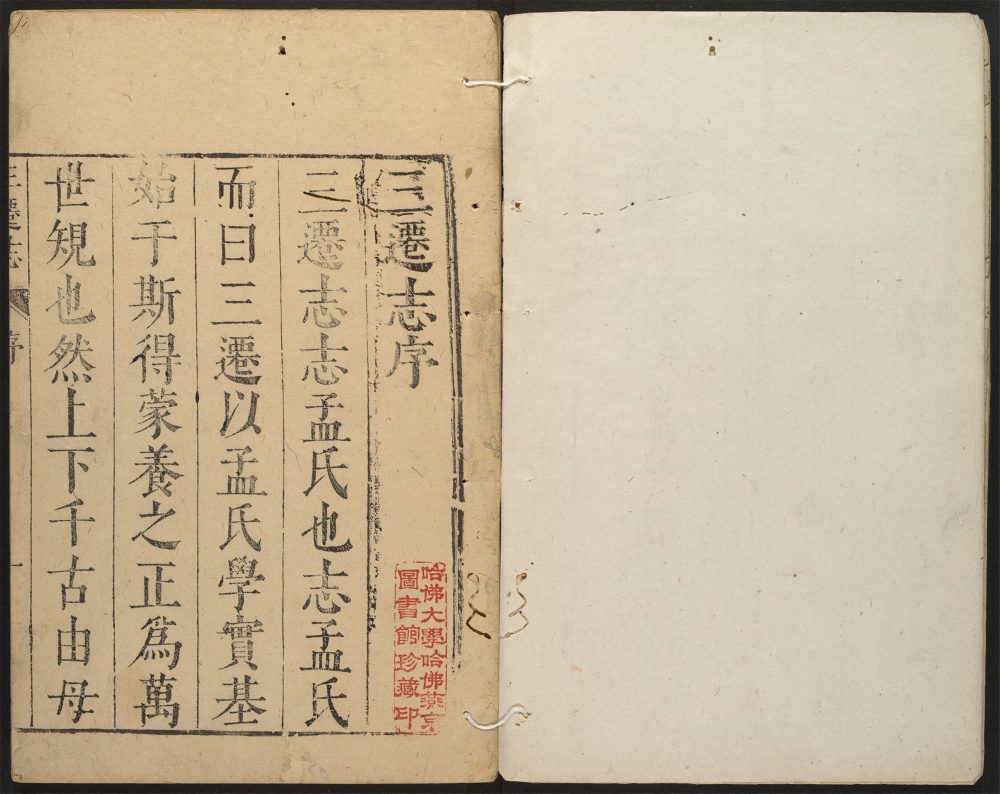 三遷志序
三遷志志孟氏也志孟氏
而曰三遷以孟氏學實基
始于斯得蒙養之正爲萬
世規也然上下千古由母
三遷志 序 一
哈佛大學哈佛燕京
圖書館珍藏印